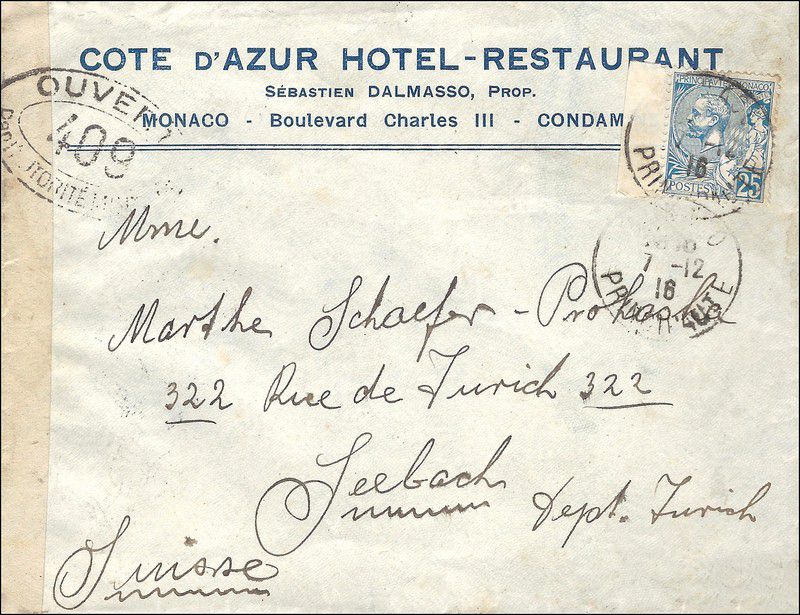 COTE D'AZUR HOTEL-RESTAURANT
SÉBASTIEN DALMASSO, PROP.
MONACO - Boulevard Charles III - CONDAM
OUVERT
409
PAR L'AUTORITÉ
PRINCIPAUTÉ MONACO
POSTES 25
16
7 -12
16
PRINCIPAUTE
Mme.
Marthe Schaefer-
322 Rue de Zurich 322
Seebach
Dept. Zurich
Suisse